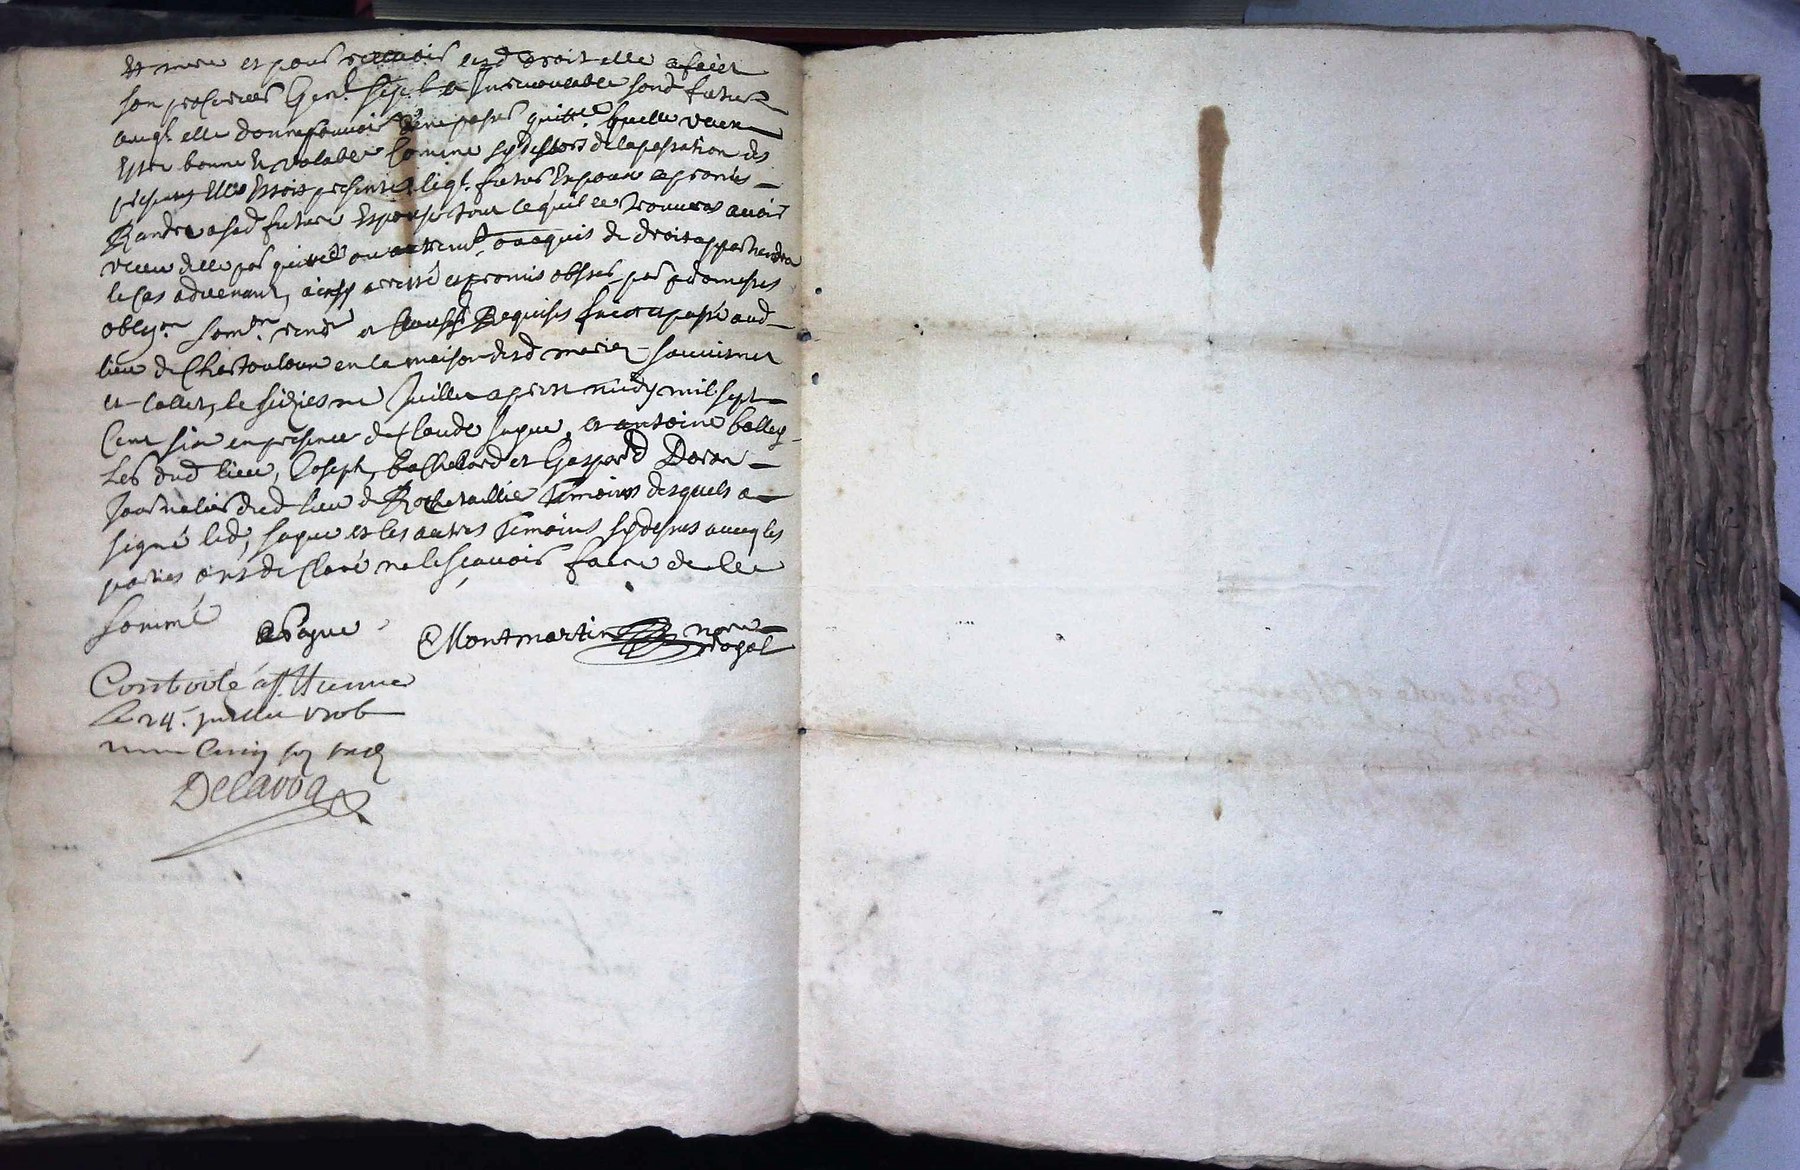 et mere et pour recevoir lesd droit elle a faict
son procureur Gen.l spe.l et Irrevocable sond futur
auql. elle donne pouvoir den passer quittce quelle veut
Estre bonne et valable Comme sy des lors de la passation des
presentes Elle Estoit presente, leql. futur Espoux a promis
Randre a sad future Espouse tout ce quil se trouvera avoir
receu delle par quittce ou autremt. a qui de droit appartiendra
le Cas advenant, ainsy arresté et promis observer par promesses
oblig.on som.on renon et Clauses Requises faict et passé aud
lieu de Chastouloux en la maison desd mariez
et Collet, le sixiesme Juillet apres midy mil sept
Cent six en presence de Claude Sagne, et antoine
dud lieu, Joseph, bachelard et Gaspard Doron
Journalier dud lieu de Rochetaillée temoins desquels a
signé led, Sagne et les autres temoins sydesnes avecq les
parties ont declaré ne le sçavoir faire de ce
sommé
Sagne Montmartin nore
royal
Controlé a St Etienne
le 24e. juillet 1706
Delavoa